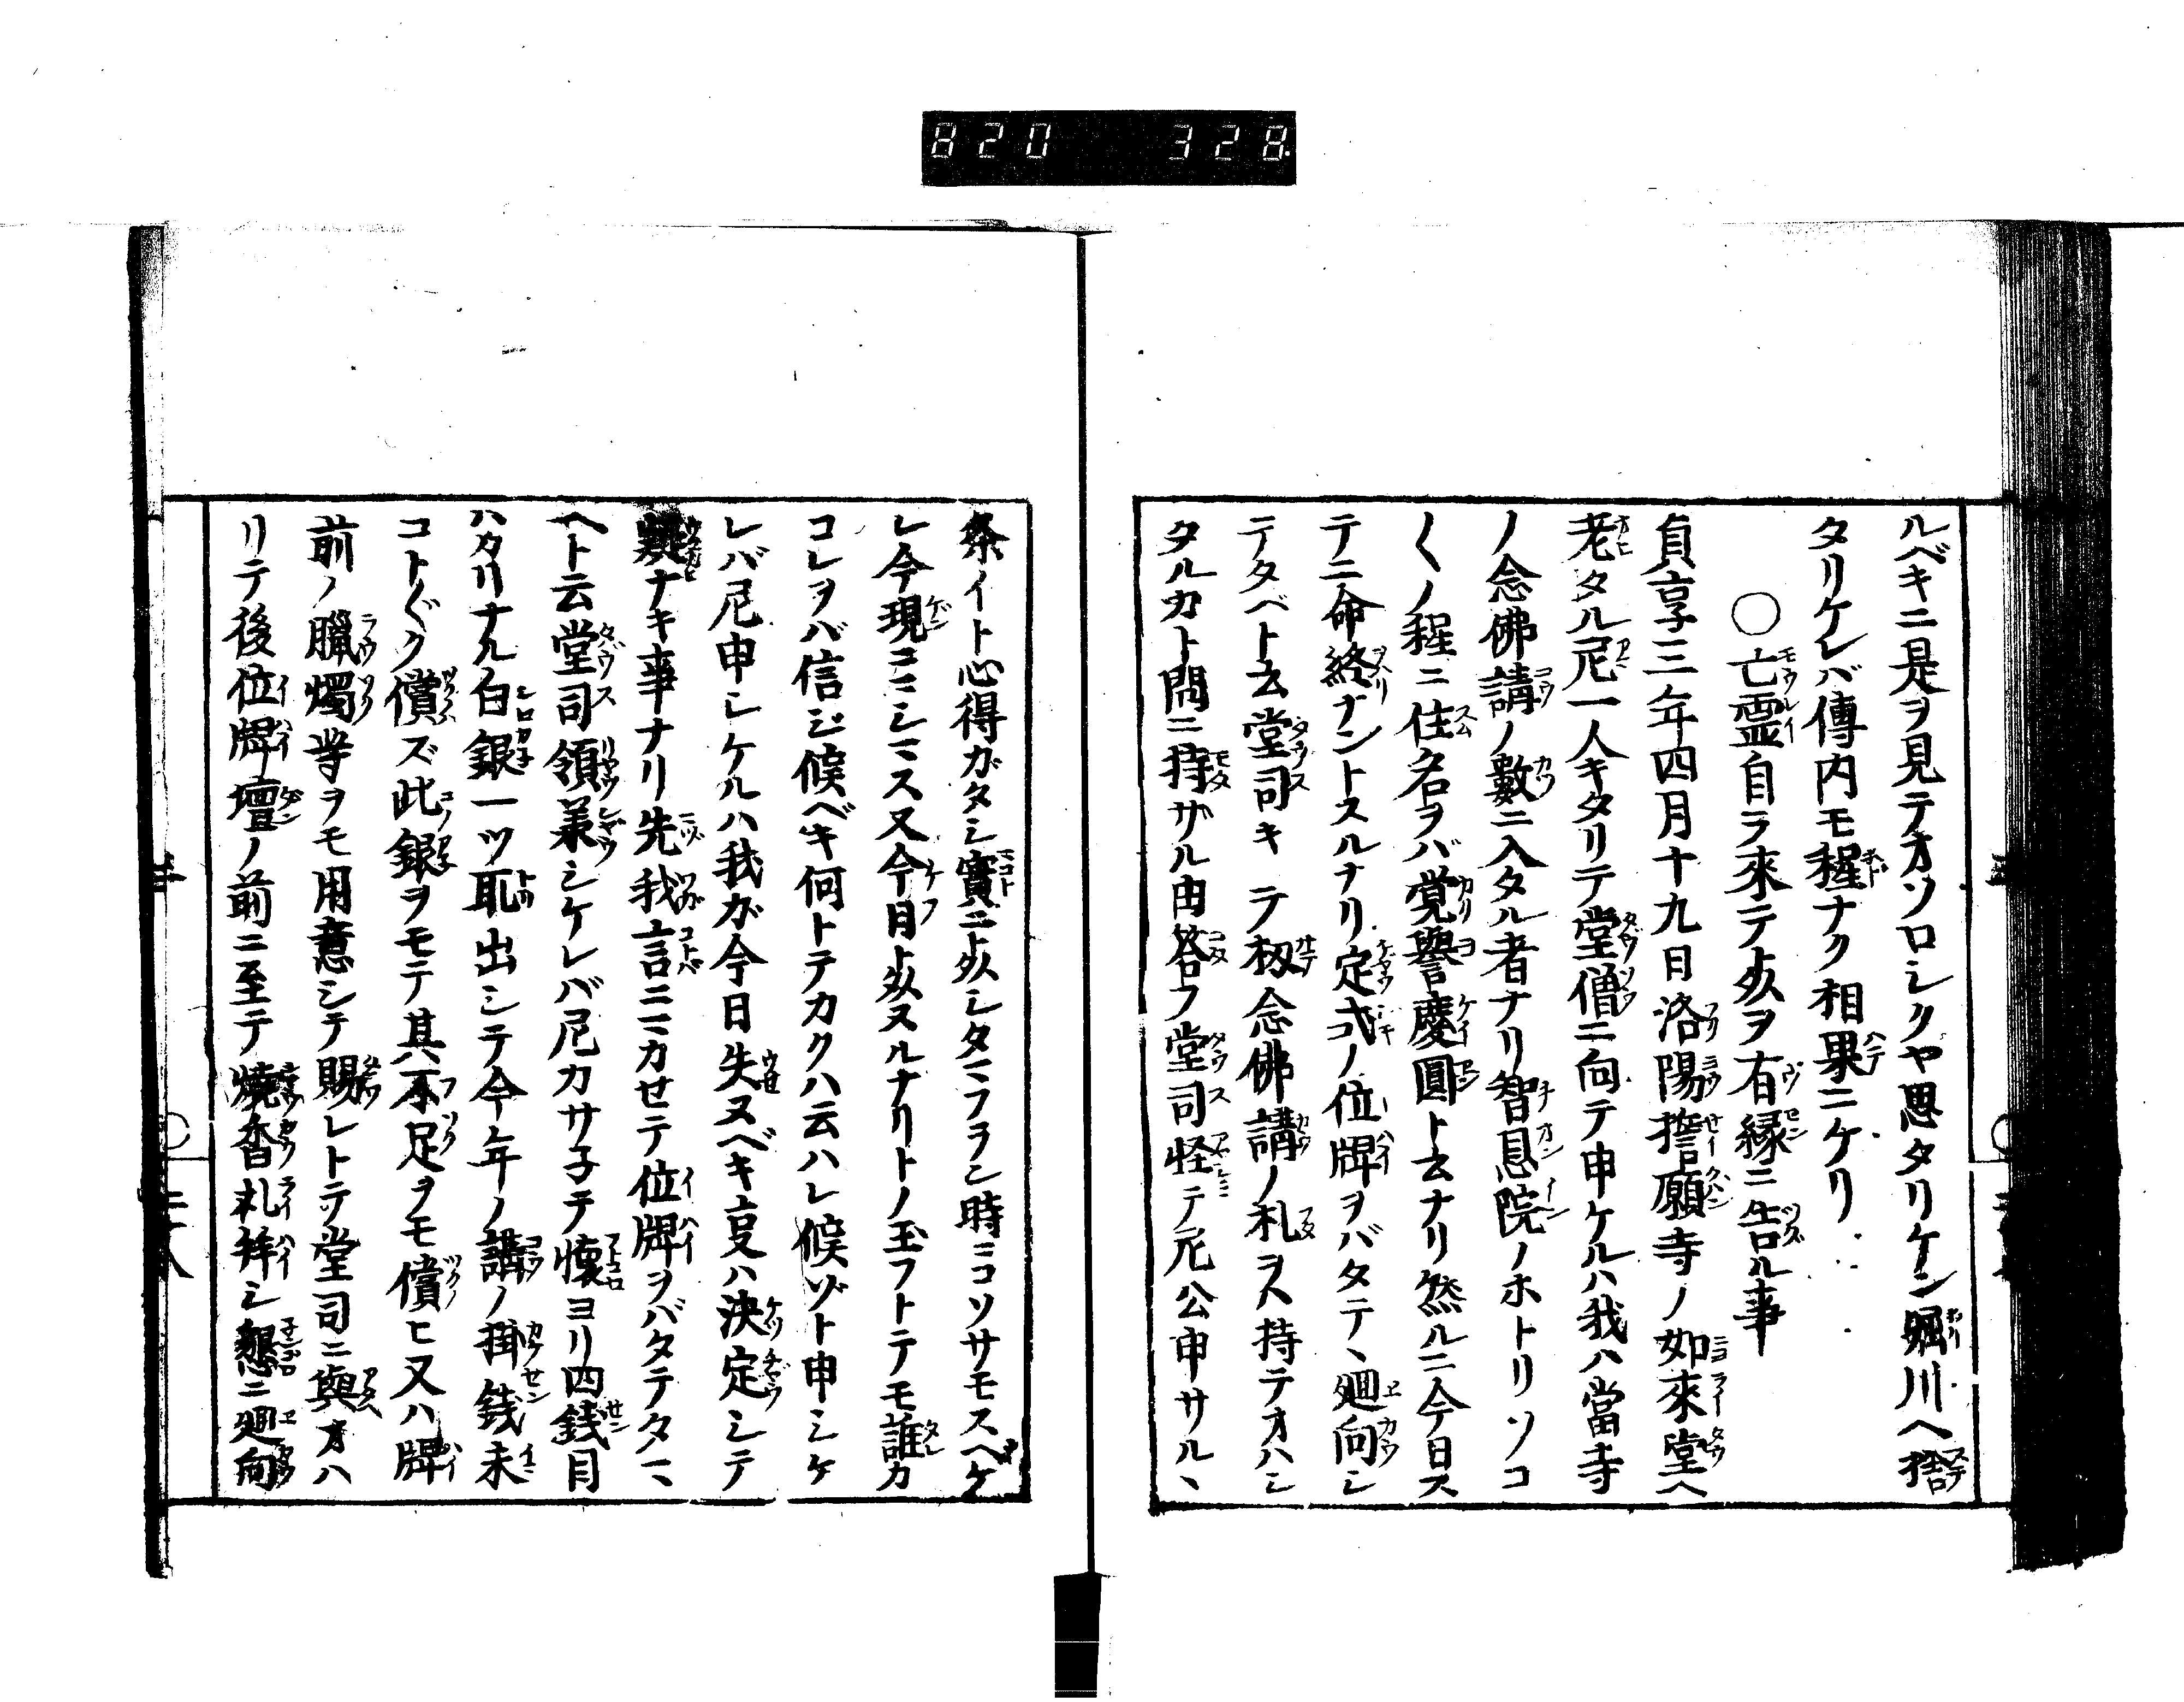 820 328
ルベキニ是ヲ見テオソロシクヤ思タリケン堀川ヘ捨
タリケレバ傳内モ程ナク相果ニケリ
○亡霊自ラ來テ死ヲ有縁ニ告ル事
貞享三年四月十九日洛陽誓願寺ノ如來堂ヘ
老タル尼一人キタリテ堂僧ニ向テ申ケルハ我ハ當寺
ノ念佛講ノ數ニ入タル者ナリ智恩院ノホトリソコ
〱ノ程ニ住名ヲバ覚譽慶圓ト云ナリ然ルニ今日ス
テニ命終ナントスルナリ定式ノ位牌ヲバタテヽ廻向シ
テタベト云堂司キヽテ扨念佛講ノ札ヲハ持テオハシ
タルカト問ニ持ザル由答フ堂司怪テ尼公申サルヽ
条イト心得ガタシ實ニ死シタマフラン時ニコソサモスベケ
レ今現ニマシマス又今日死ヌルナリトノ玉フトテモ誰カ
コレヲバ信ジ候ベキ何トテカクハ云ハレ候ゾト申シケ
レバ尼申シケルハ我ガ今日失ヌベキ叓ハ決定シテ
疑ナキ事ナリ先我言ニマカせテ位牌ヲバタテタマ
ヘト云堂司領兼シケレバ尼カサ子テ懐ヨリ四銭目
ハカリナル白銀一ツ取出シテ今年ノ講ノ掛銭未
コト〲ク償ズ此銀ヲモテ其不足ヲモ償ヒ又ハ牌
前ノ臘燭等ヲモ用意シテ賜レトテ堂司ニ與オハ
リテ後位牌壇ノ前ニ至テ燒香礼拜シ懇ニ廻向